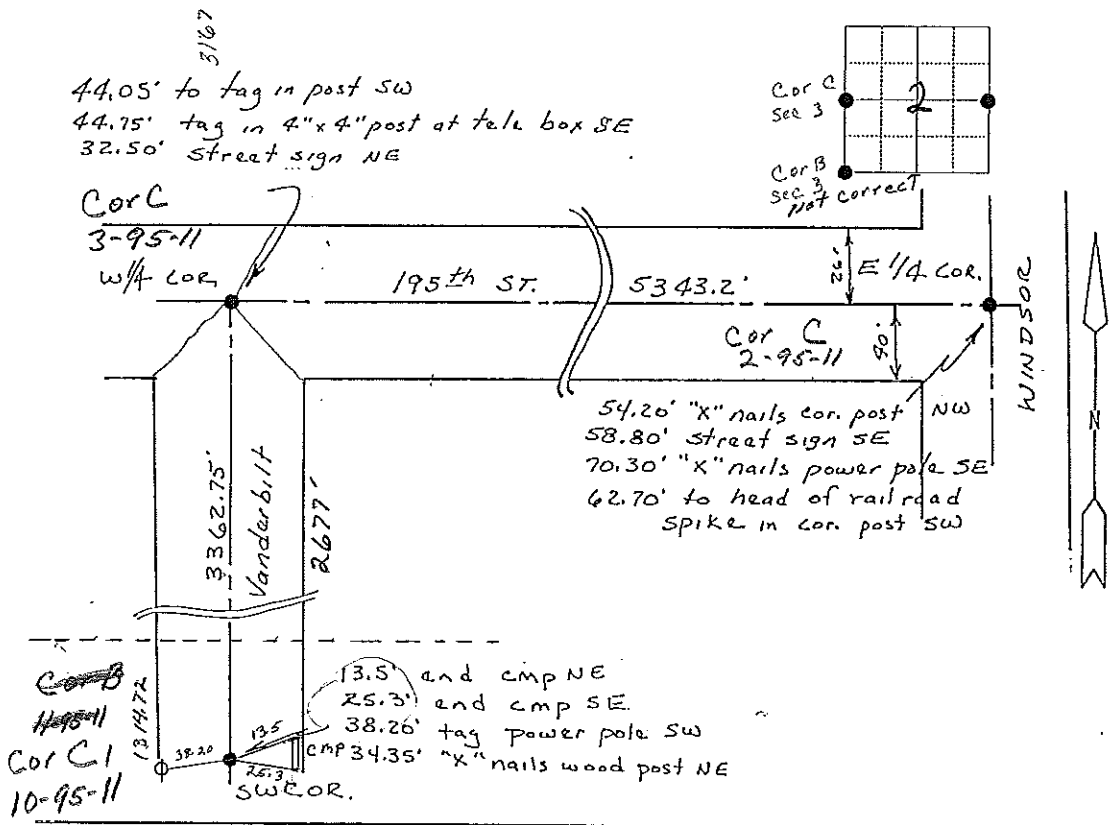 3167
44.05' to tag in post SW
44.75' tag in 4"x 4" post at tele box SE
32.50' street sign NE
Cor C
sec 3
2
Cor B
sec 3
not correct
Cor C
3-95-11
W 1/4 COR.
195th ST.
5343.2'
E 1/4 COR.
Cor C
2-95-11
40'
WINDSOR
54.20' "X" nails cor. post NW
58.80' street sign SE
70.30' "X" nails power pole SE
62.70' to head of railroad
spike in cor. post SW
N
3362.75'
Vanderbilt
2677'
Cor B
11-95-11
Cor C1
10-95-11
1314.72
13.5' end cmp NE
25.3' end cmp SE
38.26' tag power pole SW
34.35' "X" nails wood post NE
38.20
13.5
25.3
cmp
SW COR.